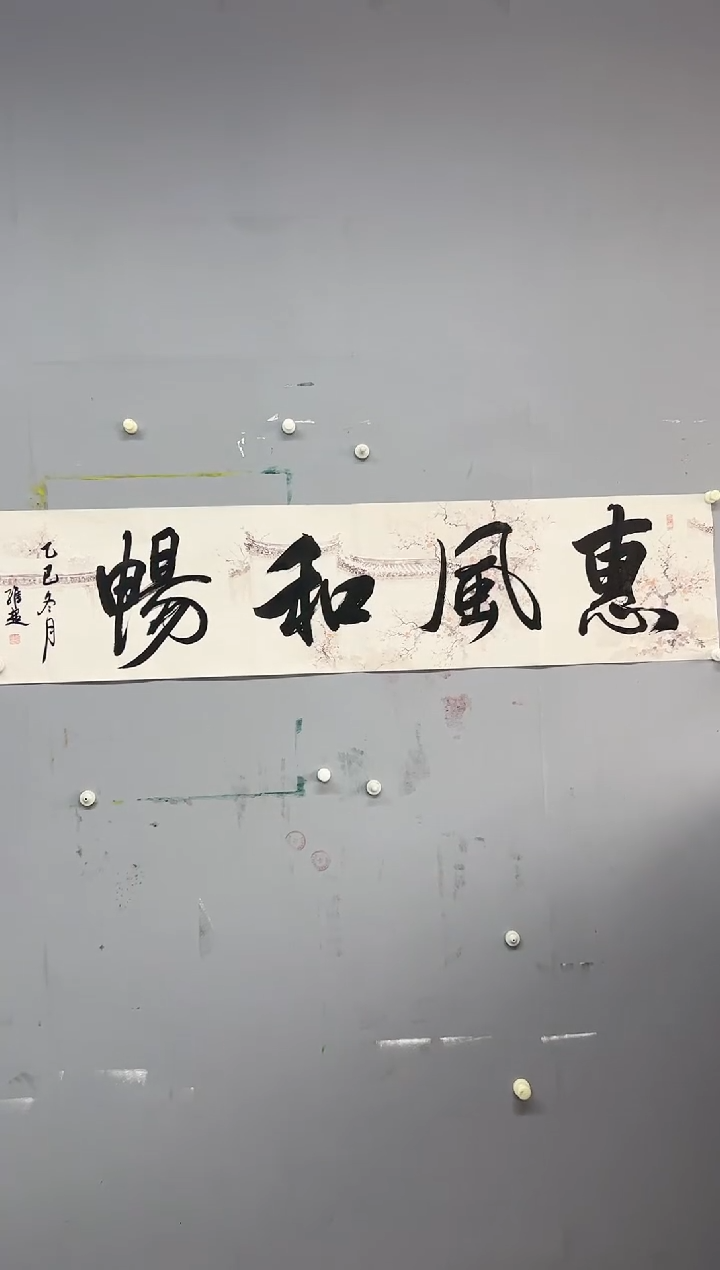 惠風和暢
乙巳冬月
雅楚